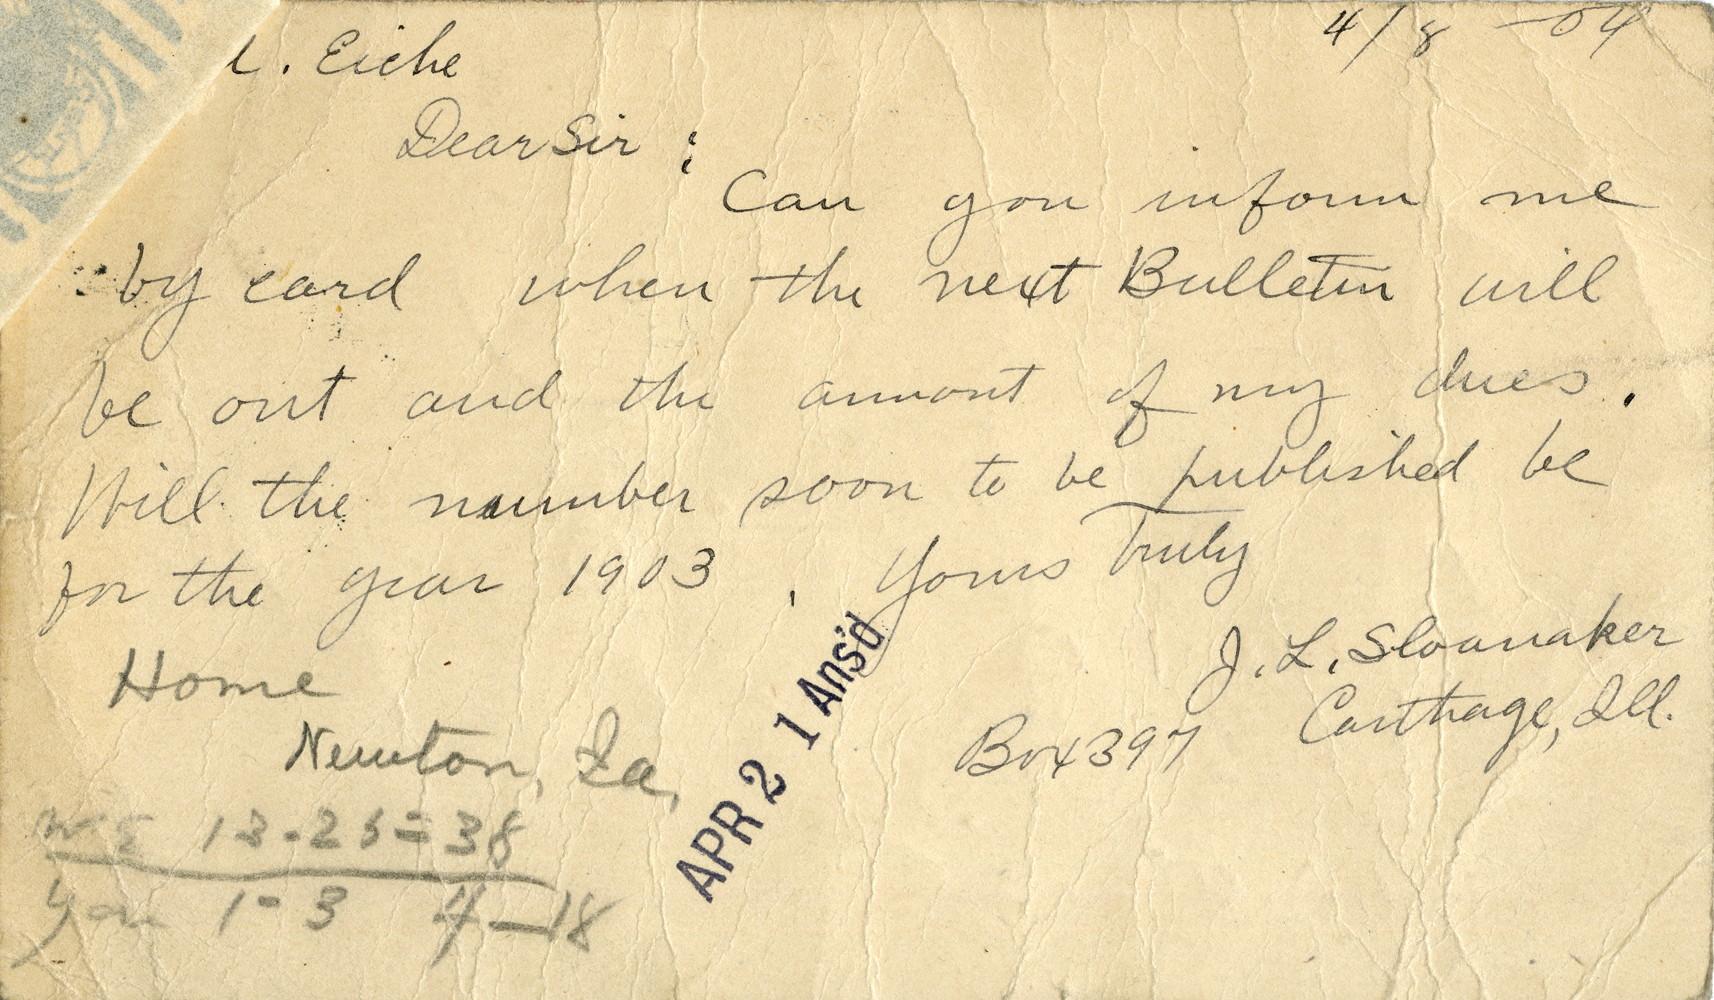 . Eiche
4/8 -04
Dear Sir :
Can you inform me
by card when the next Bulletin will
be out and the amount of my dues.
Will the number soon to be published be
for the year 1903. Yours Truly
J. L. Sloanaker
Carthage, Ill.
Box 397
Home
Newton, Ia,
APR 2 1 Ans'd
13-25=38
you 1-3 4-18